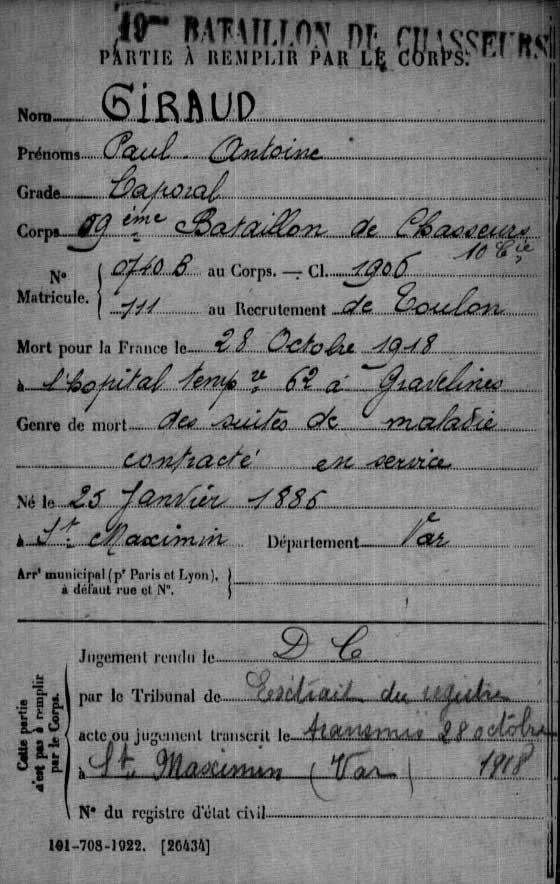 19me BATAILLON DE CHASSEURS
PARTIE À REMPLIR PAR LE CORPS.
Nom GIRAUD
Prénoms Paul. Antoine
Grade Caporal
Corps 19ème Bataillon de Chasseurs
10 Cie
No Matricule. { 0740 B au Corps. — Cl. 1906
711 au Recrutement de Toulon
Mort pour la France le 28 Octobre 1918
à l'hopital tempre 62 à Gravelines
Genre de mort des suites de maladie
contracté en service
Né le 25 Janvier 1886
à St. Maximin Département Var
Arrt municipal (pr Paris et Lyon),
à défaut rue et No.
Cette partie n'est pas à remplir par le Corps.
Jugement rendu le D C
par le Tribunal de Extrait du registre
acte ou jugement transcrit le transmis 28 octobre
à St. Maximin (Var) 1918
No du registre d'état civil
101-708-1922. [26434]